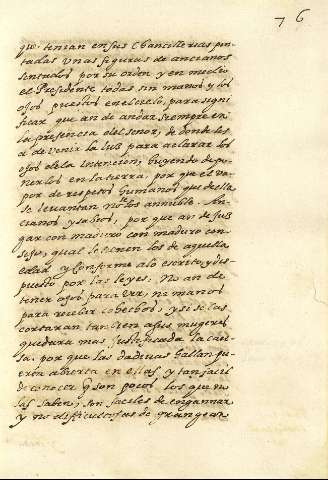 76
que tenian en sus Chancillerias pin-
tadas unas figuras de ancianos
sentados por su orden y en medio
el Presidente todas sin manos y los
ojos puestos en el cielo, para signi
ficar que an de andar siempre en
la presencia del senor, de donde les
a de venir la luz para aclarar los
ojos de la intencion, huyendo de po-
nerlos en la tierra, por que el va-
por de respetos humanos que de ella
se levantan no los annuble. An-
cianos y sabios, por que an de juz
gar con maduro con maduro con-
sejo, qual le tienen los de aquella
edad y conforme a lo escrito, y dis-
puesto por las leyes: No an de
tener ojos para ver, ni manos
para recibir cohechos, y si se las
cortaran tanbien a sus mugeres
quedara mas justificada la cau-
sa. por que las dadivas hallan pu-
erta abierta en ellas y tan facil
de conocer q son pocos los que no
las saben; son faciles de engannar
y no dificultosas de grangear.